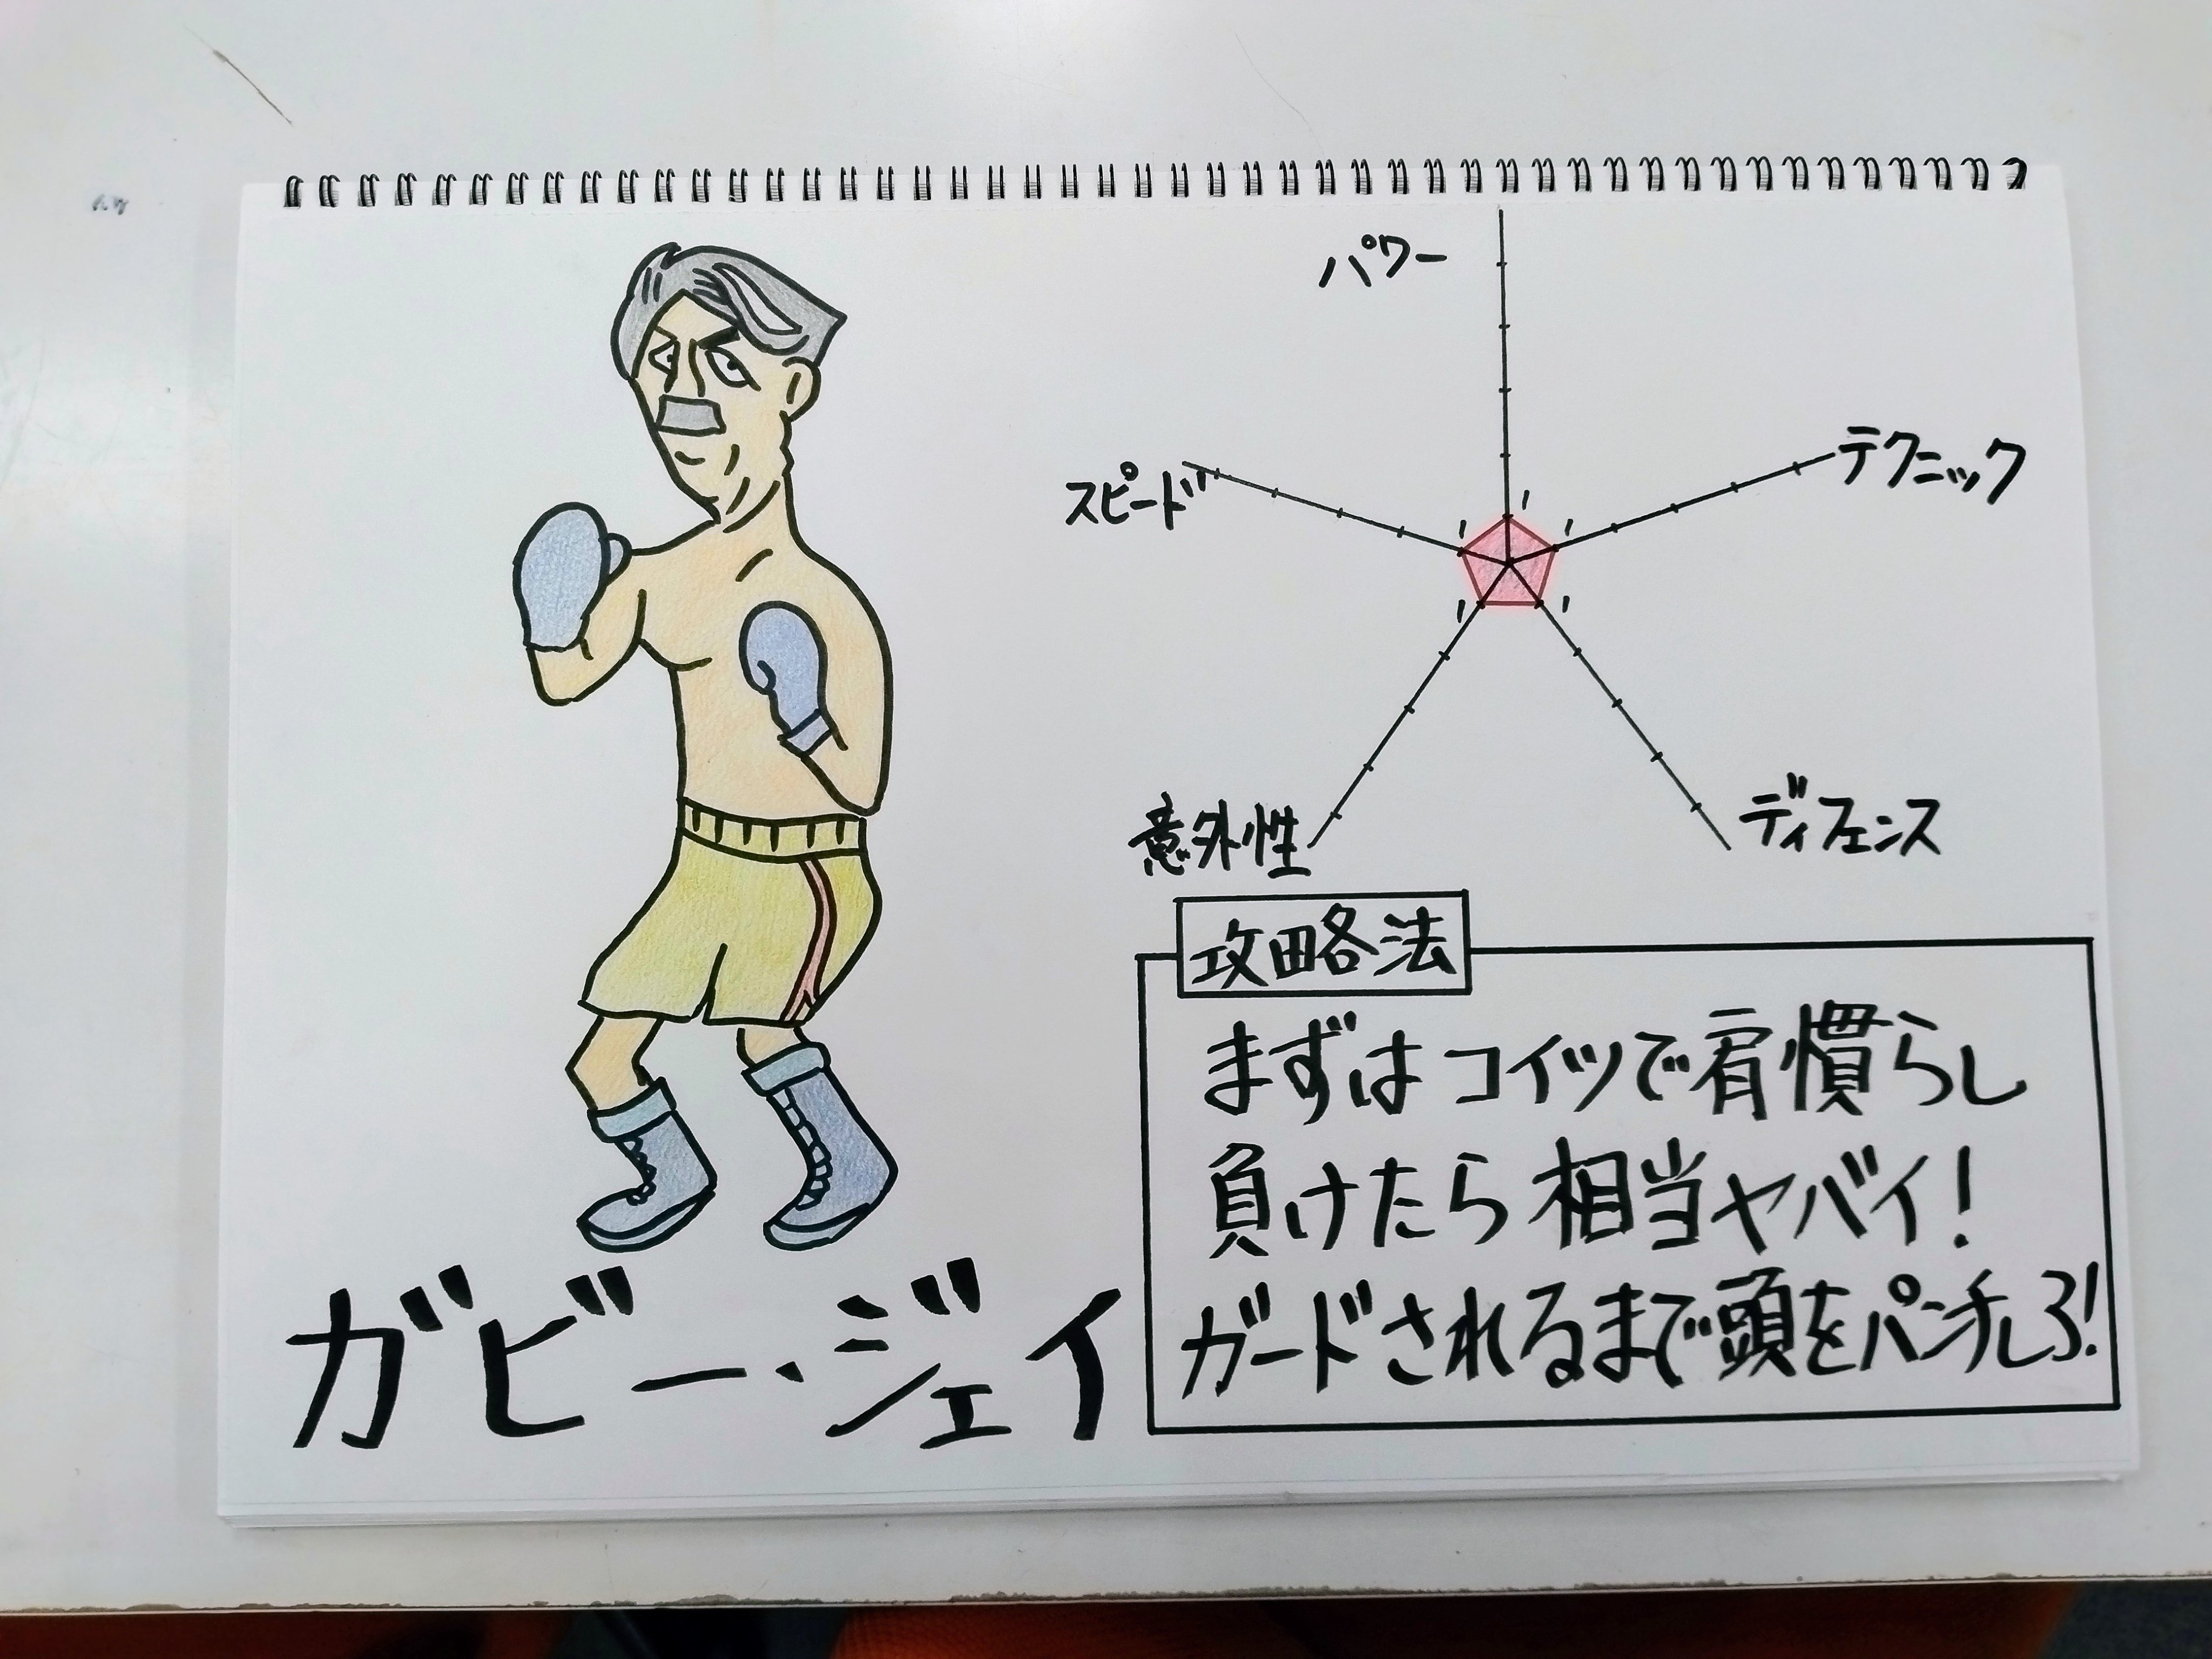 パワー
テクニック
スピード
1
1
1
1
1
意外性
ディフェンス
攻略法
まずはコイツで肩慣らし
負けたら相当ヤバイ!
ガードされるまで頭をパンチしろ!
ガビー・ジェイ